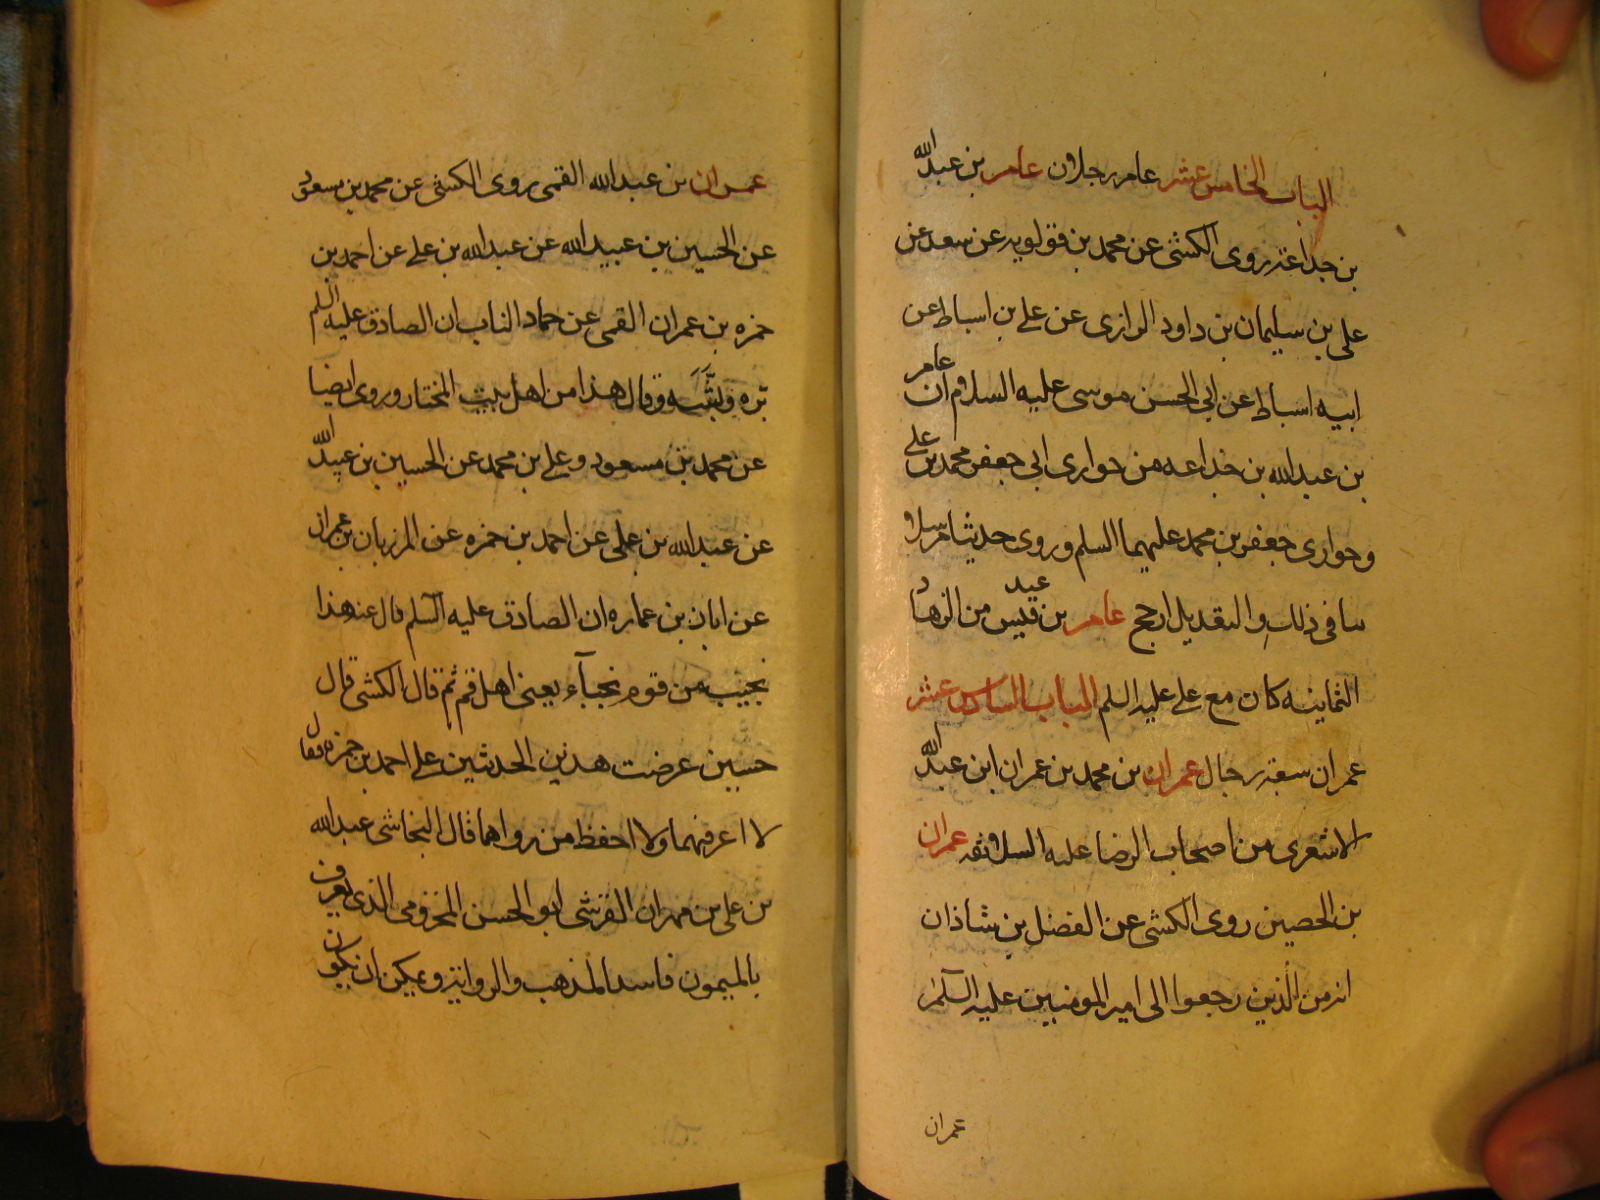 الباب الخامس عشر عامر رجلان عامر بن عبد الله
بن جداعة روى الكشي عن محمد بن قولويه عن سعد عن
علي بن سليمان بن داود الرازى عن علي بن اسباط عن
ابيه اسباط عن ابى الحسن موسى عليه السلام ان عامر
بن عبد الله بن خداعه من حوارى ابى جعفر محمد بن علي
وحوارى جعفر بن محمد عليهما السلم وروى حديثا مرسلا
ينافى ذلك والتعديل ارجح عامر بن عبد قيس من الزهاد
الثمانيه كان مع علي عليه السلم الباب السادس عشر
عمران سبعة رجال عمران بن محمد بن عمران ابن عبد الله
الاشعرى من اصحاب الرضا عليه السلام ثقه عمران
بن الحصين روى الكشى عن الفضل بن شاذان
انه من الذين رجعوا الى امير المومنين عليه السلم
عمران
عمران بن عبد الله القمى روى الكشى عن محمد بن مسعود
عن الحسين بن عبيد الله عن عبد الله بن علي عن احمد بن
حمزه بن عمران القمى عن حماد الناب ان الصادق عليه السلم
بره وبشه وقال هذا من اهل بيت المختار وروى ايضا
عن محمد بن مسعود وعلي بن محمد عن الحسين بن عبيد الله
عن عبد الله بن على عن احمد بن حمزه عن المرزبان بن عمران
عن ابان بن عماره ان الصادق عليه السلم قال عنه هذا
نجيب من قوم نجباء يعنى اهل قم ثم قال الكشى قال
حسين عرضت هذين الحديثين علي احمد بن حمزه فقال
لا اعرفهما ولا احفظ من رواهما قال النجاشى عبد الله
بن على بن مهران القرشى ابو الحسن المخزومى الذى يعرف
بالميمون فاسد المذهب والرواية ويمكن ان يكون